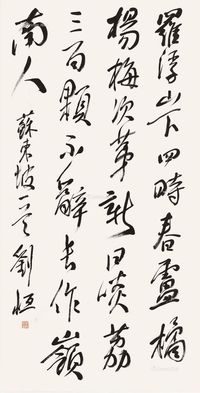 羅浮山下四時春盧橘
楊梅次第新日啖荔
三百顆不辭長作嶺
南人 蘇東坡 劉恒